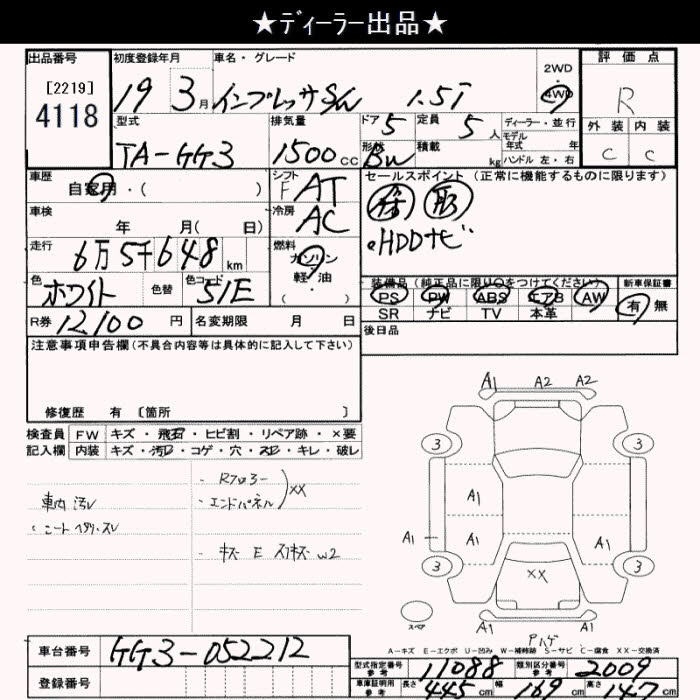 ★ディーラー出品★
出品番号
[2219]
4118
初度登録年月
19 3月
車名・グレード
インプレッサSW 1.5i
2WD
4WD
評価点
R
外装 内装
C C
型式
TA-GG3
排気量
1500cc
ドア 5
定員 5人
形状 BW
積載 kg
ディーラー・並行
モデル
年式 年
ハンドル 左・右
車歴
自家用・( )
シフト
F AT
セールスポイント (正常に機能するものに限ります)
HDDナビ
車検
年 月( 日)
冷房
AC
走行
6万5千648km
燃料
ガソリン
軽・油
( )
色
ホワイト
色替
色コード
51E
装備品(純正品に限り○をつけてください)
PS PW ABS エアB AW
SR ナビ TV 本革
新車保証書
有 無
R券 12100円
名変期限 月 日
後日品
注意事項申告欄(不具合内容等は具体的に記入して下さい)
修復歴 有 [箇所 ]
検査員 FW キズ・飛石・ヒビ割・リペア跡・×要
記入欄 内装 キズ・汚れ・コゲ・穴・スレ・キレ・破レ
車内 汚レ
Rフロアー
エンドパネル XX
キズ E W2
A1 A2 A2
3 3
A1
A1 A1 A1
3 3
XX
A1 A1
スペア
A-キズ E-エクボ U-凹み W-補修跡 S-サビ C-腐食 XX-交換済
車台番号 GG3-052212
登録番号
型式指定番号
参考
11088
類別区分番号
参考
2009
車庫証明用
参考
長さ 445cm 幅 169cm 高さ 147cm